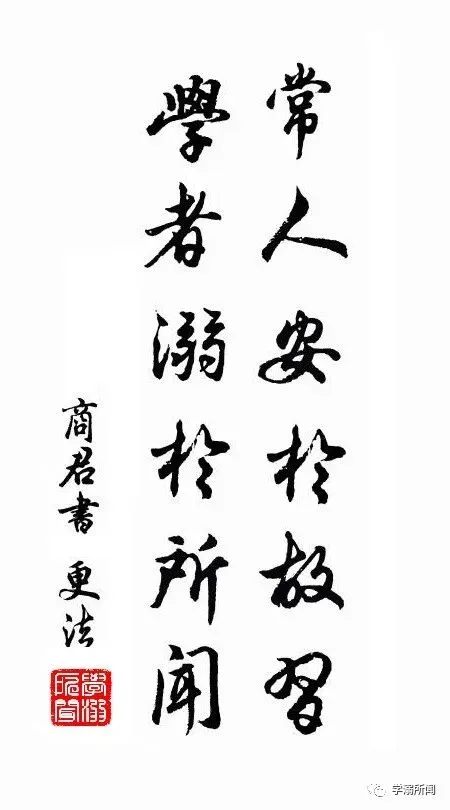 常人安於故習
學者溺於所聞
商君書 更法
學溺所聞
学溺所闻